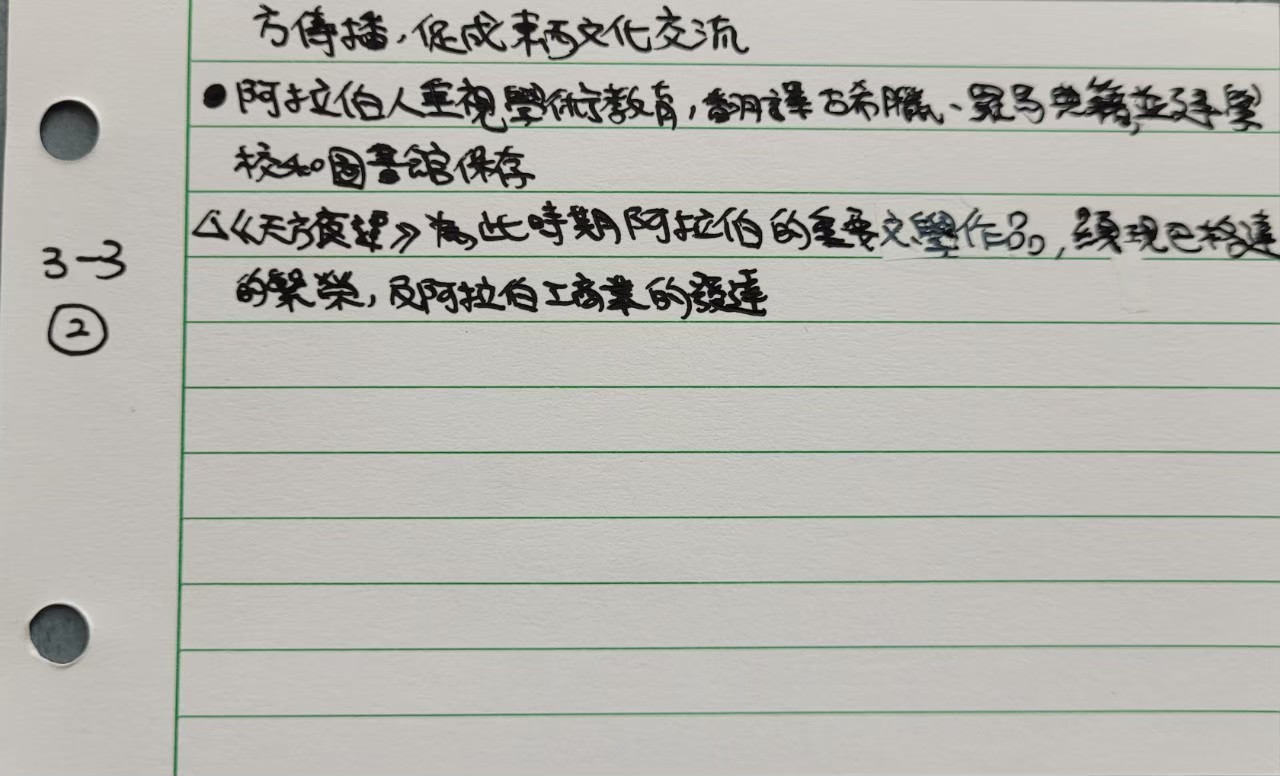 方傳播,促成東西文化交流
●阿拉伯人重視學術教育,翻譯古希臘、羅馬典籍,並建學
校和圖書館保存
△《天方夜譚》為此時期阿拉伯的重要文學作品,現巴格達
的繁榮,及阿拉伯工商業的發達
3-3
②